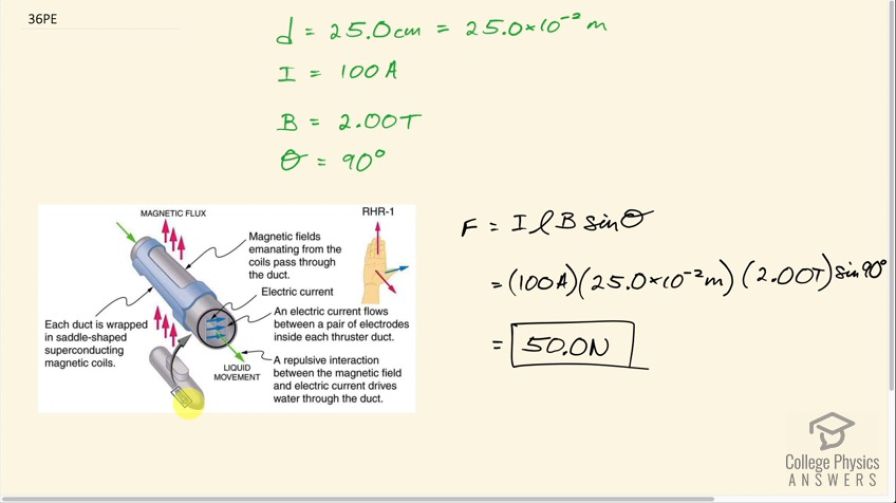 36PE
d = 25.0 cm = 25.0×10⁻² m
I = 100 A
B = 2.00 T
θ = 90°
MAGNETIC FLUX
RHR-1
Magnetic fields
emanating from the
coils pass through
the duct.
Electric current
An electric current flows
between a pair of electrodes
inside each thruster duct.
Each duct is wrapped
in saddle-shaped
superconducting
magnetic coils.
LIQUID
MOVEMENT
A repulsive interaction
between the magnetic field
and electric current drives
water through the duct.
F = I l B sin θ
= (100 A)(25.0×10⁻² m)(2.00 T) sin 90°
= 50.0 N
College Physics
ANSWERS